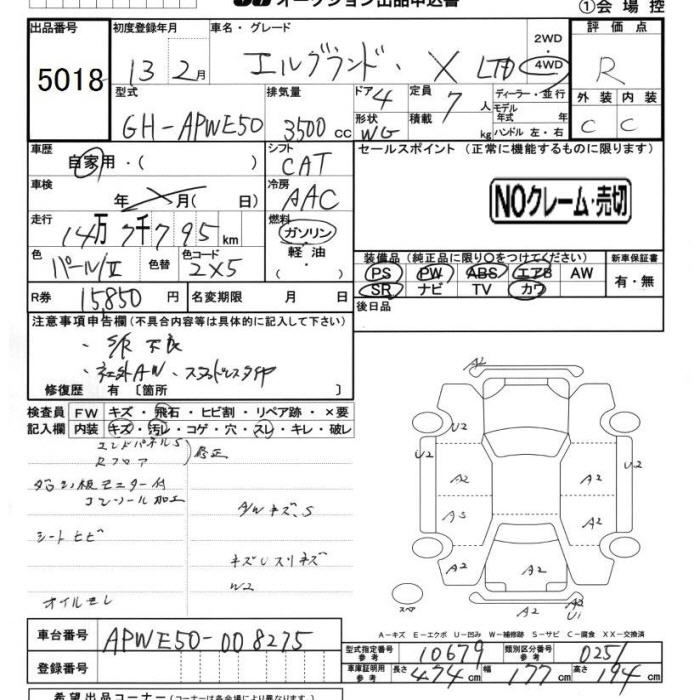 オークション出品申込書
①会場控
出品番号 初度登録年月 車名・グレード 評価点
5018 13 2月 エルグランド・X LTD 2WD 4WD R
型式 排気量 ドア 定員 ディーラー・並行 外装 内装
GH-APWE50 3500cc 4 7人 モデル年式 年 C C
形状 WG 積載 kg ハンドル 左・右
車歴 シフト セールスポイント (正常に機能するものに限ります)
自家用・( ) CAT
車検 冷房
年 月( 日) AAC NOクレーム・売切
走行 燃料
14万7千795km ガソリン
色 色替 色コード 軽油 装備品 (純正品に限り○をつけてください) 新車保証書
パール/II 2X5 ・( ) PS PW ABS エアB AW 有・無
R券 15,850円 名変期限 月 日 SR ナビ TV カワ
後日品
注意事項申告欄 (不具合内容等は具体的に記入して下さい)
・S/R不良
・社外AW・スタッドレスタイヤ
修復歴 有 [箇所 ]
検査員 FW キズ・飛石・ヒビ割・リペア跡・×要
記入欄 内装 キズ・汚レ・コゲ・穴・スレ・キレ・破レ
エンドパネルS
Rフロア 修正
モニター付
コンソール加工
A/Wキズ、S
シートヒビ
W2
オイルモレ
A2
U2 U2
A2 A2
A2
A2 A2
A2
A2
U1
スペア
A-キズ E-エクボ U-凹み W-補修跡 S-サビ C-腐食 XX-交換済
車台番号 APWE50-008275
型式指定番号 参考 10679 類別区分番号 参考 0251
登録番号 車庫証明用 参考 長さ 474cm 幅 177cm 高さ 194cm
希望出品コーナー (コーナーは各会場により異なります)